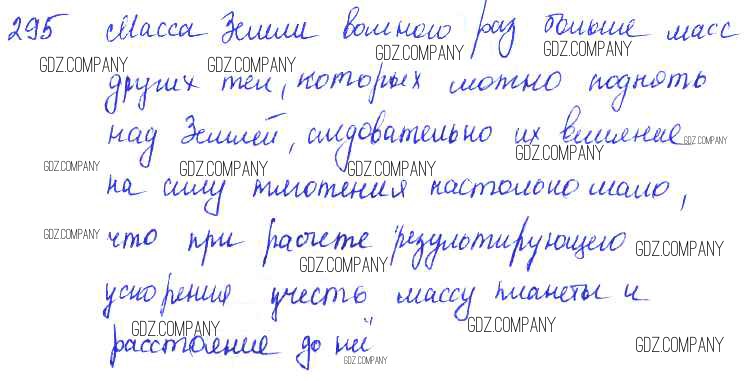 295 Масса Земли во много раз больше масс
GDZ.COMPANY GDZ.COMPANY GDZ.COMPANY GDZ.COMPANY
других тел, которых можно поднять
над Землей, следовательно их влияние
GDZ.COMPANY GDZ.COMPANY GDZ.COMPANY GDZ.COMPANY GDZ.COMPANY
на силу тяготения настолько мало,
что при расчете "результирующего
GDZ.COMPANY GDZ.COMPANY GDZ.COMPANY
ускорения учесть массу планеты и
GDZ.COMPANY GDZ.COMPANY GDZ.COMPANY
расстояние до неё"
GDZ.COMPANY